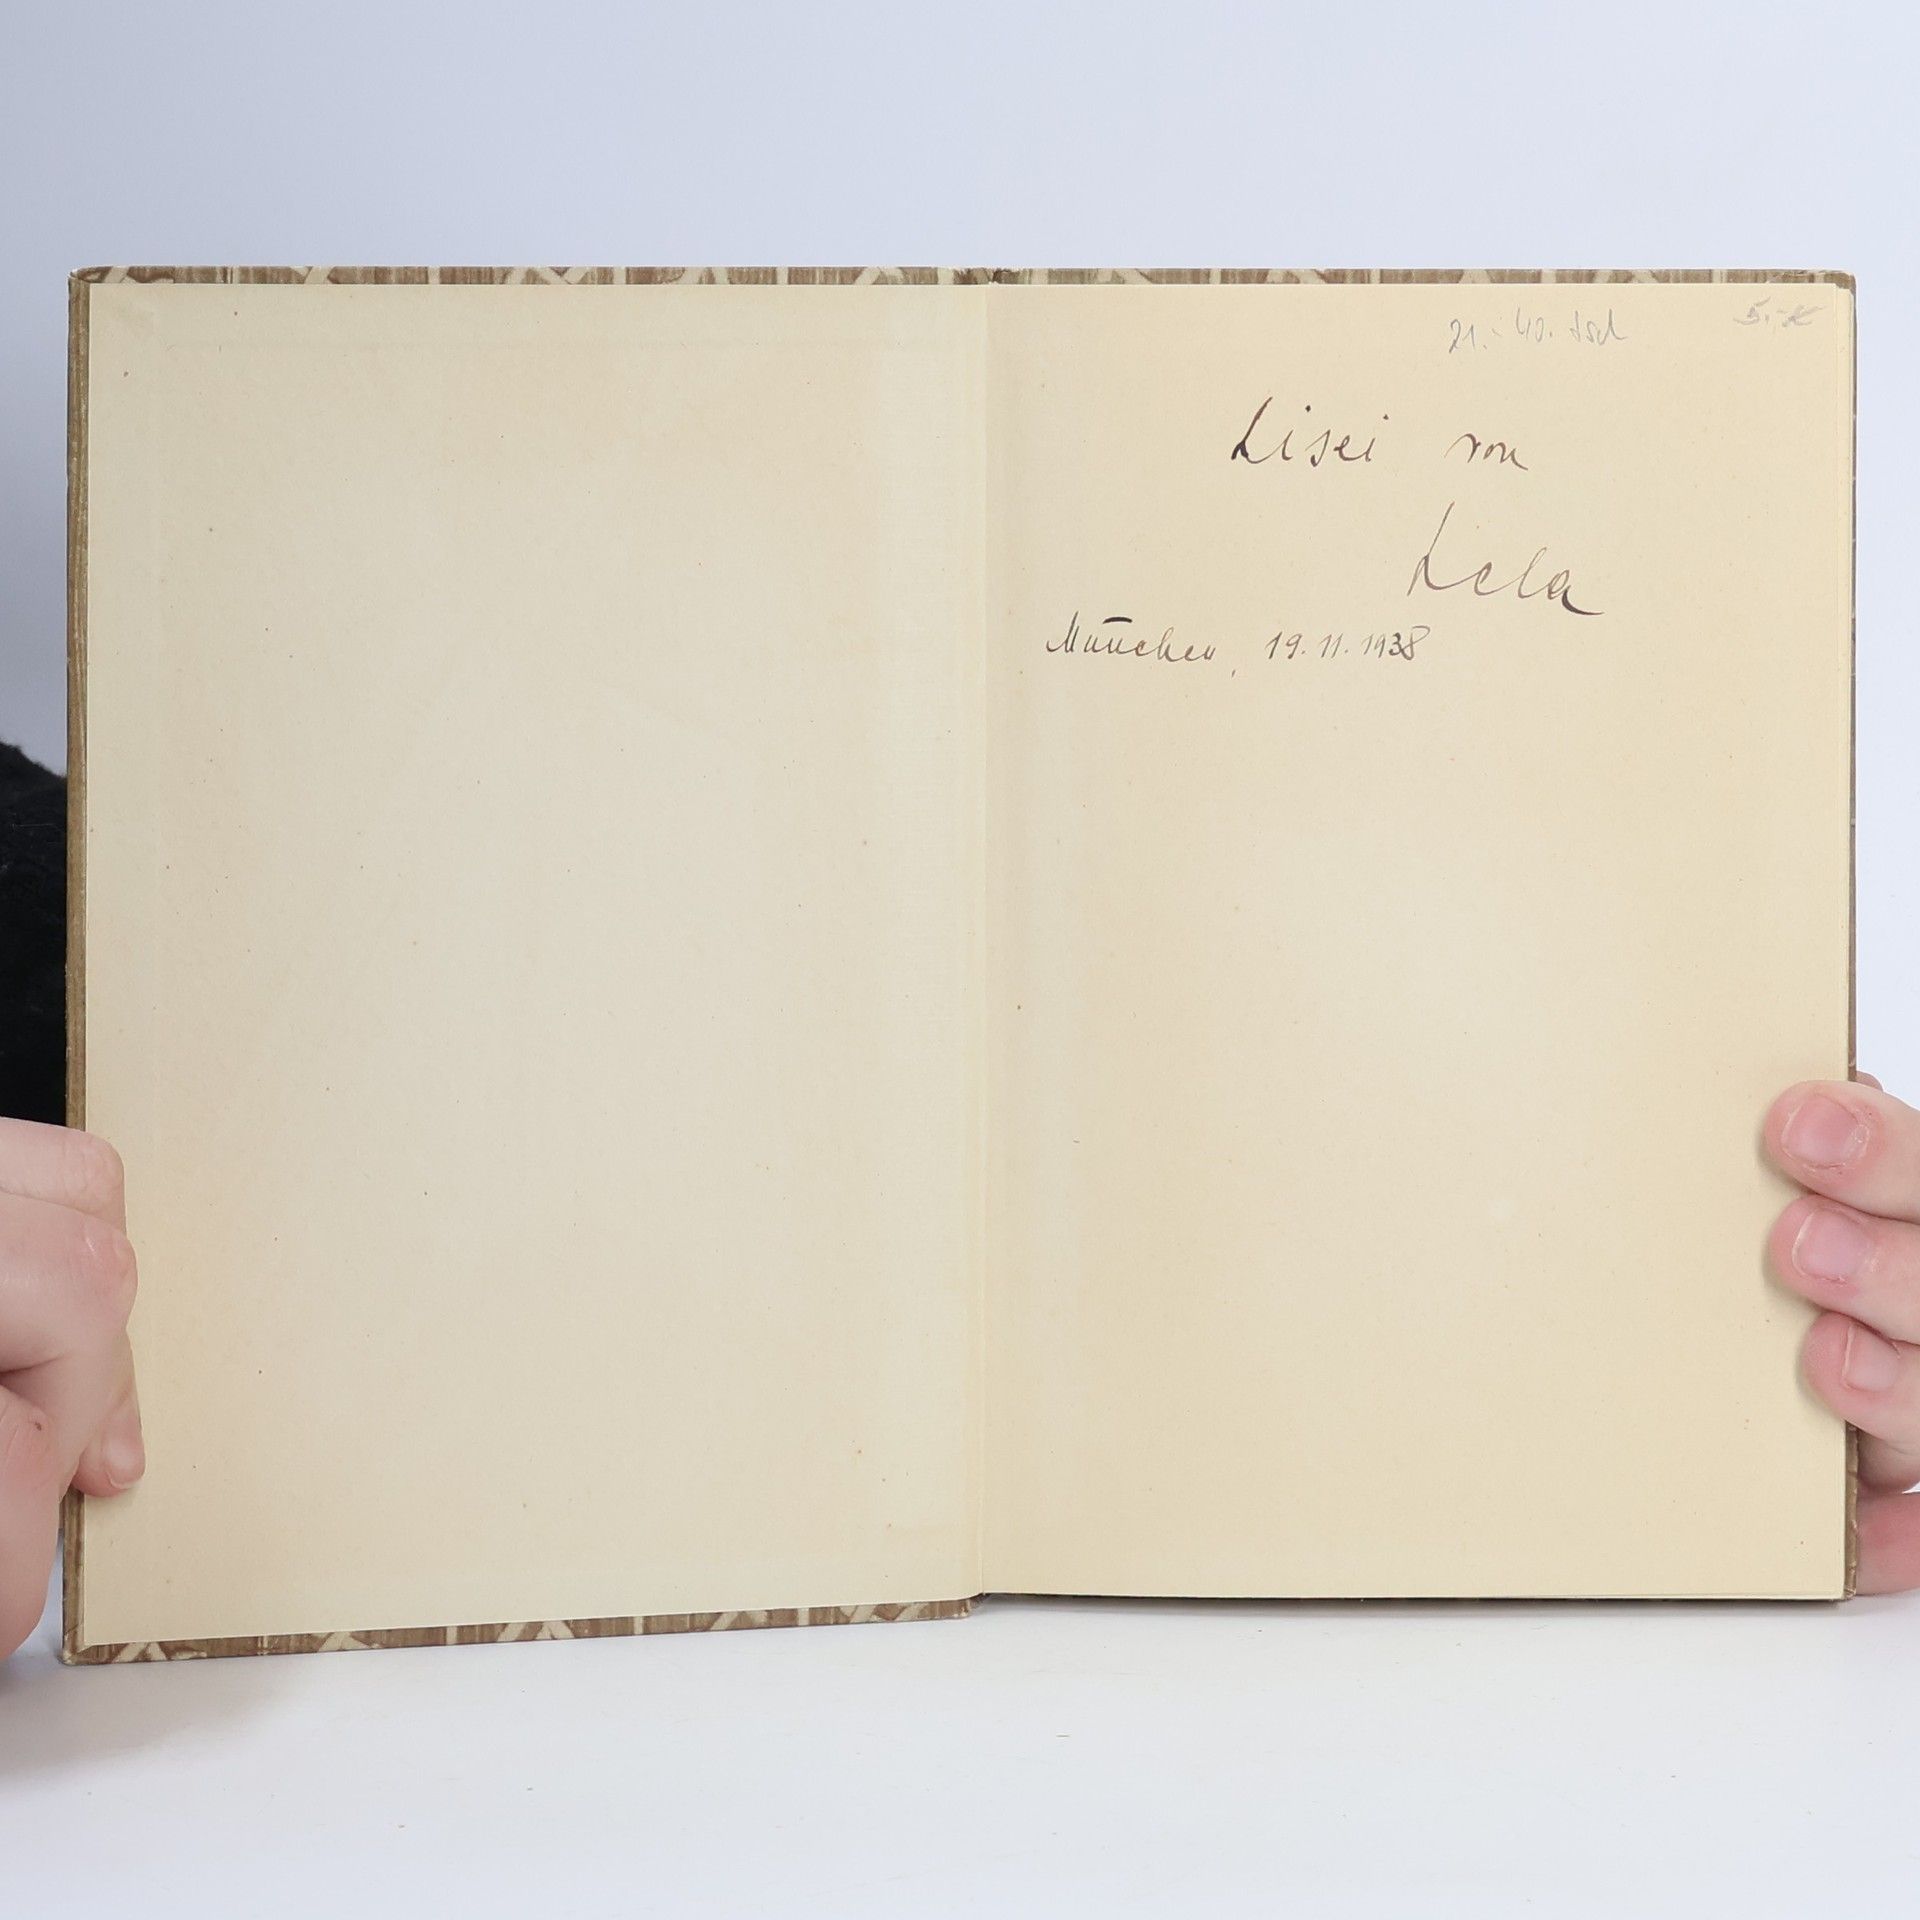 21.-40. Tsd
5.-
Lisei von
Lela
München, 19.11.1938